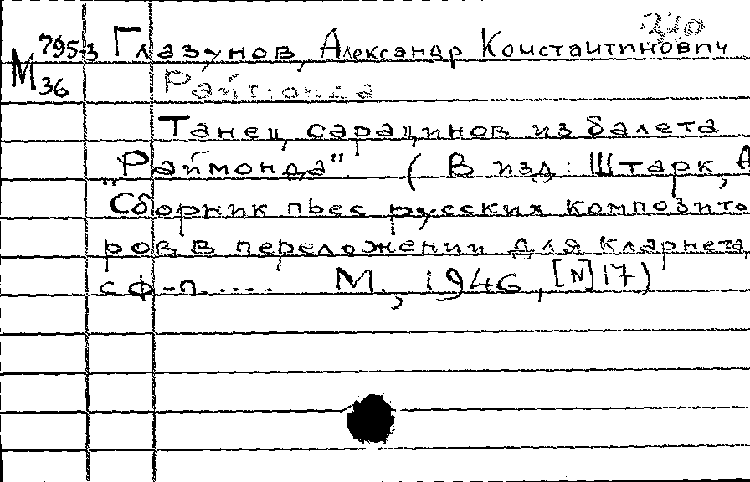 210
М 795-3 Глазунов, Александр Константинович
36 Раймонда
Танец сарацинов из балета
„Раймонда". (В изд: Штарк, А
Сборник пьес русских композито
ров в переложении для кларнета
с ф-п.... М., 1946, [N] 17)